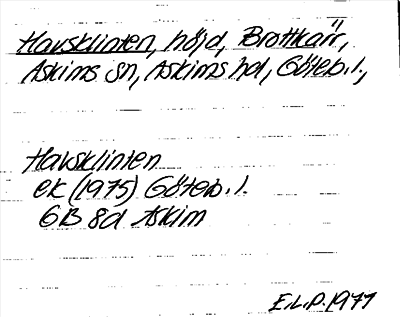 Havsklinten, höjd, Brottkärr,
Askims sn, Askims hd, Göteb.l.,
Havsklinten
ek (1975) Göteb.l.
6B 8d Askim
E.L.P. 1977